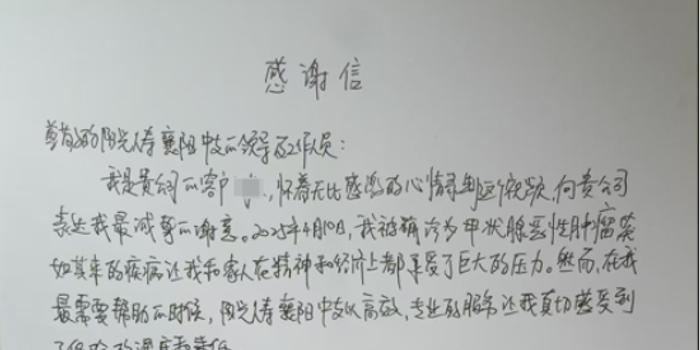 感谢信
尊敬的阳光人寿襄阳中支的领导及工作人员：
我是贵公司的客户，怀着无比感激的心情录制这个视频，向贵公司
表达我最诚挚的谢意。2025年4月10日，我被确诊为甲状腺恶性肿瘤，突
如其来的疾病让我和家人在精神和经济上都承受了巨大的压力。然而，在我
最需要帮助的时候，阳光人寿襄阳中支以高效，专业的服务让我真切感受到
了保险的温度和责任